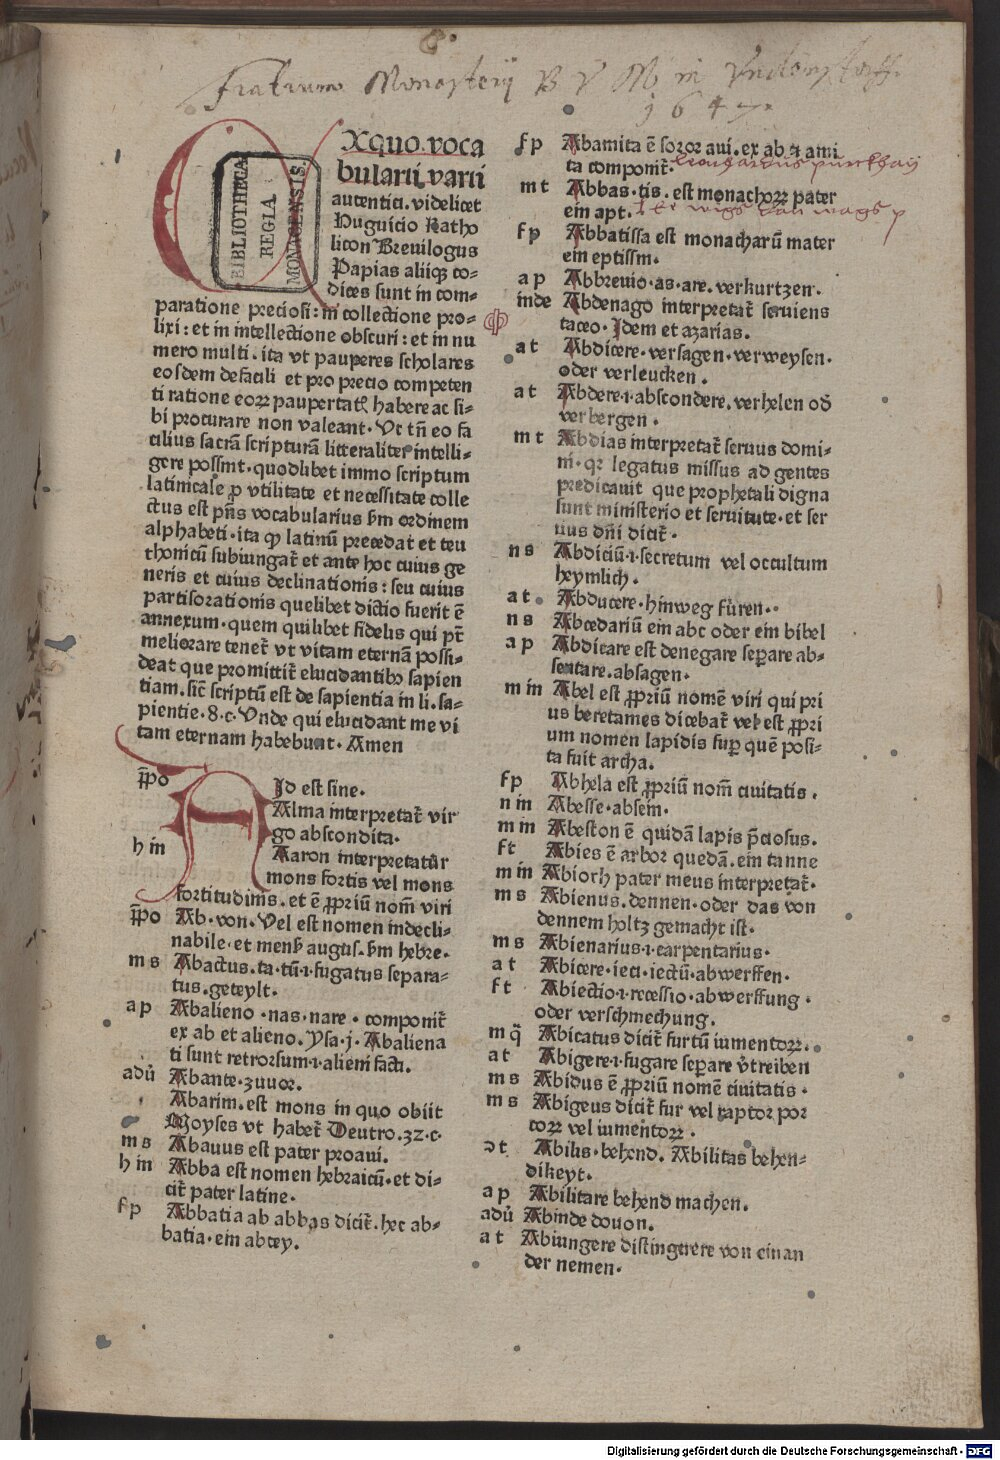 Fratrum Monasterij B V M in Undenstorff.
1647.
BIBLIOTHECA
REGIA
MONACENSIS.
EXquo voca
bularii varii
autentici. videlicet
Huguicio Katho
licon Breuilogus
Papias aliiqꝫ co-
dices sunt in com-
paratione preciosi: in collectione pro-
lixi: et in intellectione obscuri: et in nu
mero multi. ita vt pauperes scholares
eosdem defacili et pro precio competen
ti ratione eoꝝ paupertatꝭ habere ac si-
bi procurare non valeant. Vt tñ eo fa
cilius sacrā scripturā litteraliter intelli-
gere possint. quodlibet immo scriptum
latinicale ꝓ vtilitate et necessitate colle
ctus est pñs vocabularius ẜm ordinem
alphabeti. ita ꝙ latinū precedat et teu
thonicū subiungat᷑ et ante hoc cuius ge
neris et cuius declinationis: seu cuius
partisorationis quelibet dictio fuerit ē
annexum. quem quilibet fidelis qui pt̄
meliorare tenet᷑ vt vitam eternā possi-
deat que promittit᷑ elucidantibꝰ sapien
tiam. sic̄ scriptū est de sapientia in li. sa-
pientie. 8. c. Vnde qui elucidant me vi
tam eternam habebunt. Amen
p̄po A Id est sine.
Alma interpretat᷑ vir
go abscondita.
h in Aaron interpretatur
mons fortis vel mons
fortitudinis. et ē ꝓpriū nom̄ viri
p̄po Ab. von. Vel est nomen indecli-
nabile. et mensꝭ augus. ẜm hebre.
m s Abactus. ta. tū. i. fugatus separa-
tus. geteylt.
a p Abalieno. nas. nare. componit᷑
ex ab et alieno. Ysa. j. Abaliena
ti sunt retrorsum. i. alieni facti.
adů Abante. zuuor.
Abarim. est mons in quo obiit
Moyses vt habet᷑ Deutro. 32. c.
m s Abauus est pater proaui.
h in Abba est nomen hebraicū. et di-
cit᷑ pater latine.
f p Abbatia ab abbas dicit᷑. hec ab-
batia. ein abtey.
f p Abamita ē soror aui. ex ab ⁊ ami
ta componit᷑.
m t Abbas. tis. est monachoꝝ pater
ein apt.
f p Abbatissa est monacharū mater
ein eptissin.
a p Abbreuio. as. are. verkurtzen.
inde Abdenago interpretat᷑ seruiens
taceo. Idem et azarias.
a t Abdicere. versagen. verweysen.
oder verleucken.
a t Abdere. i. abscondere. verhelen od̄
verbergen.
m t Abdias interpretat᷑ seruus domi-
ni. qꝛ legatus missus ad gentes
predicauit que prophetali digna
sunt ministerio et seruitute. et ser
uus dñi dicit᷑.
n s Abditiū. i. secretum vel occultum
heymlich.
a t Abducere. hinweg füren.
n s Abcedariū ein abc oder ein bibel
a p Abdicare est denegare seꝑare ab-
sentare. absagen.
m in Abel est ꝓpriū nomē viri qui pri
us beretames dicebat᷑ vel est ꝓpri
um nomen lapidis suꝑ quē posi-
ta fuit archa.
f p Abhela est ꝓpriū nom̄ ciuitatis.
n in Abesse. absein.
m in Abeston ē quidā lapis p̄ciosus.
f t Abies ē arbor quedā. ein tanne
m in Abiorh pater meus interpretat᷑.
m s Abienus. dennen. oder das von
dennem holtz gemacht ist.
m s Abienarius. i. carpentarius.
a t Abicere. ieci. iectū. abwerffen.
f t Abiectio. i. recessio. abwerffung.
oder verschmechung.
m q̈ Abicatus dicit᷑ furtū iumentoꝝ.
a t Abigere. i. fugare seꝑare v̓treiben
m s Abidus ē ꝓpriū nomē ciuitatis.
m s Abigeus dicit᷑ fur vel raptor por
coꝝ vel iumentoꝝ.
ɔ t Abilis. behend. Abilitas behen-
dikeyt.
a p Abilitare behend machen.
adů Abinde douon.
a t Abiungere distinguere von einan
der nemen.
Digitalisierung gefördert durch die Deutsche Forschungsgemeinschaft - DFG